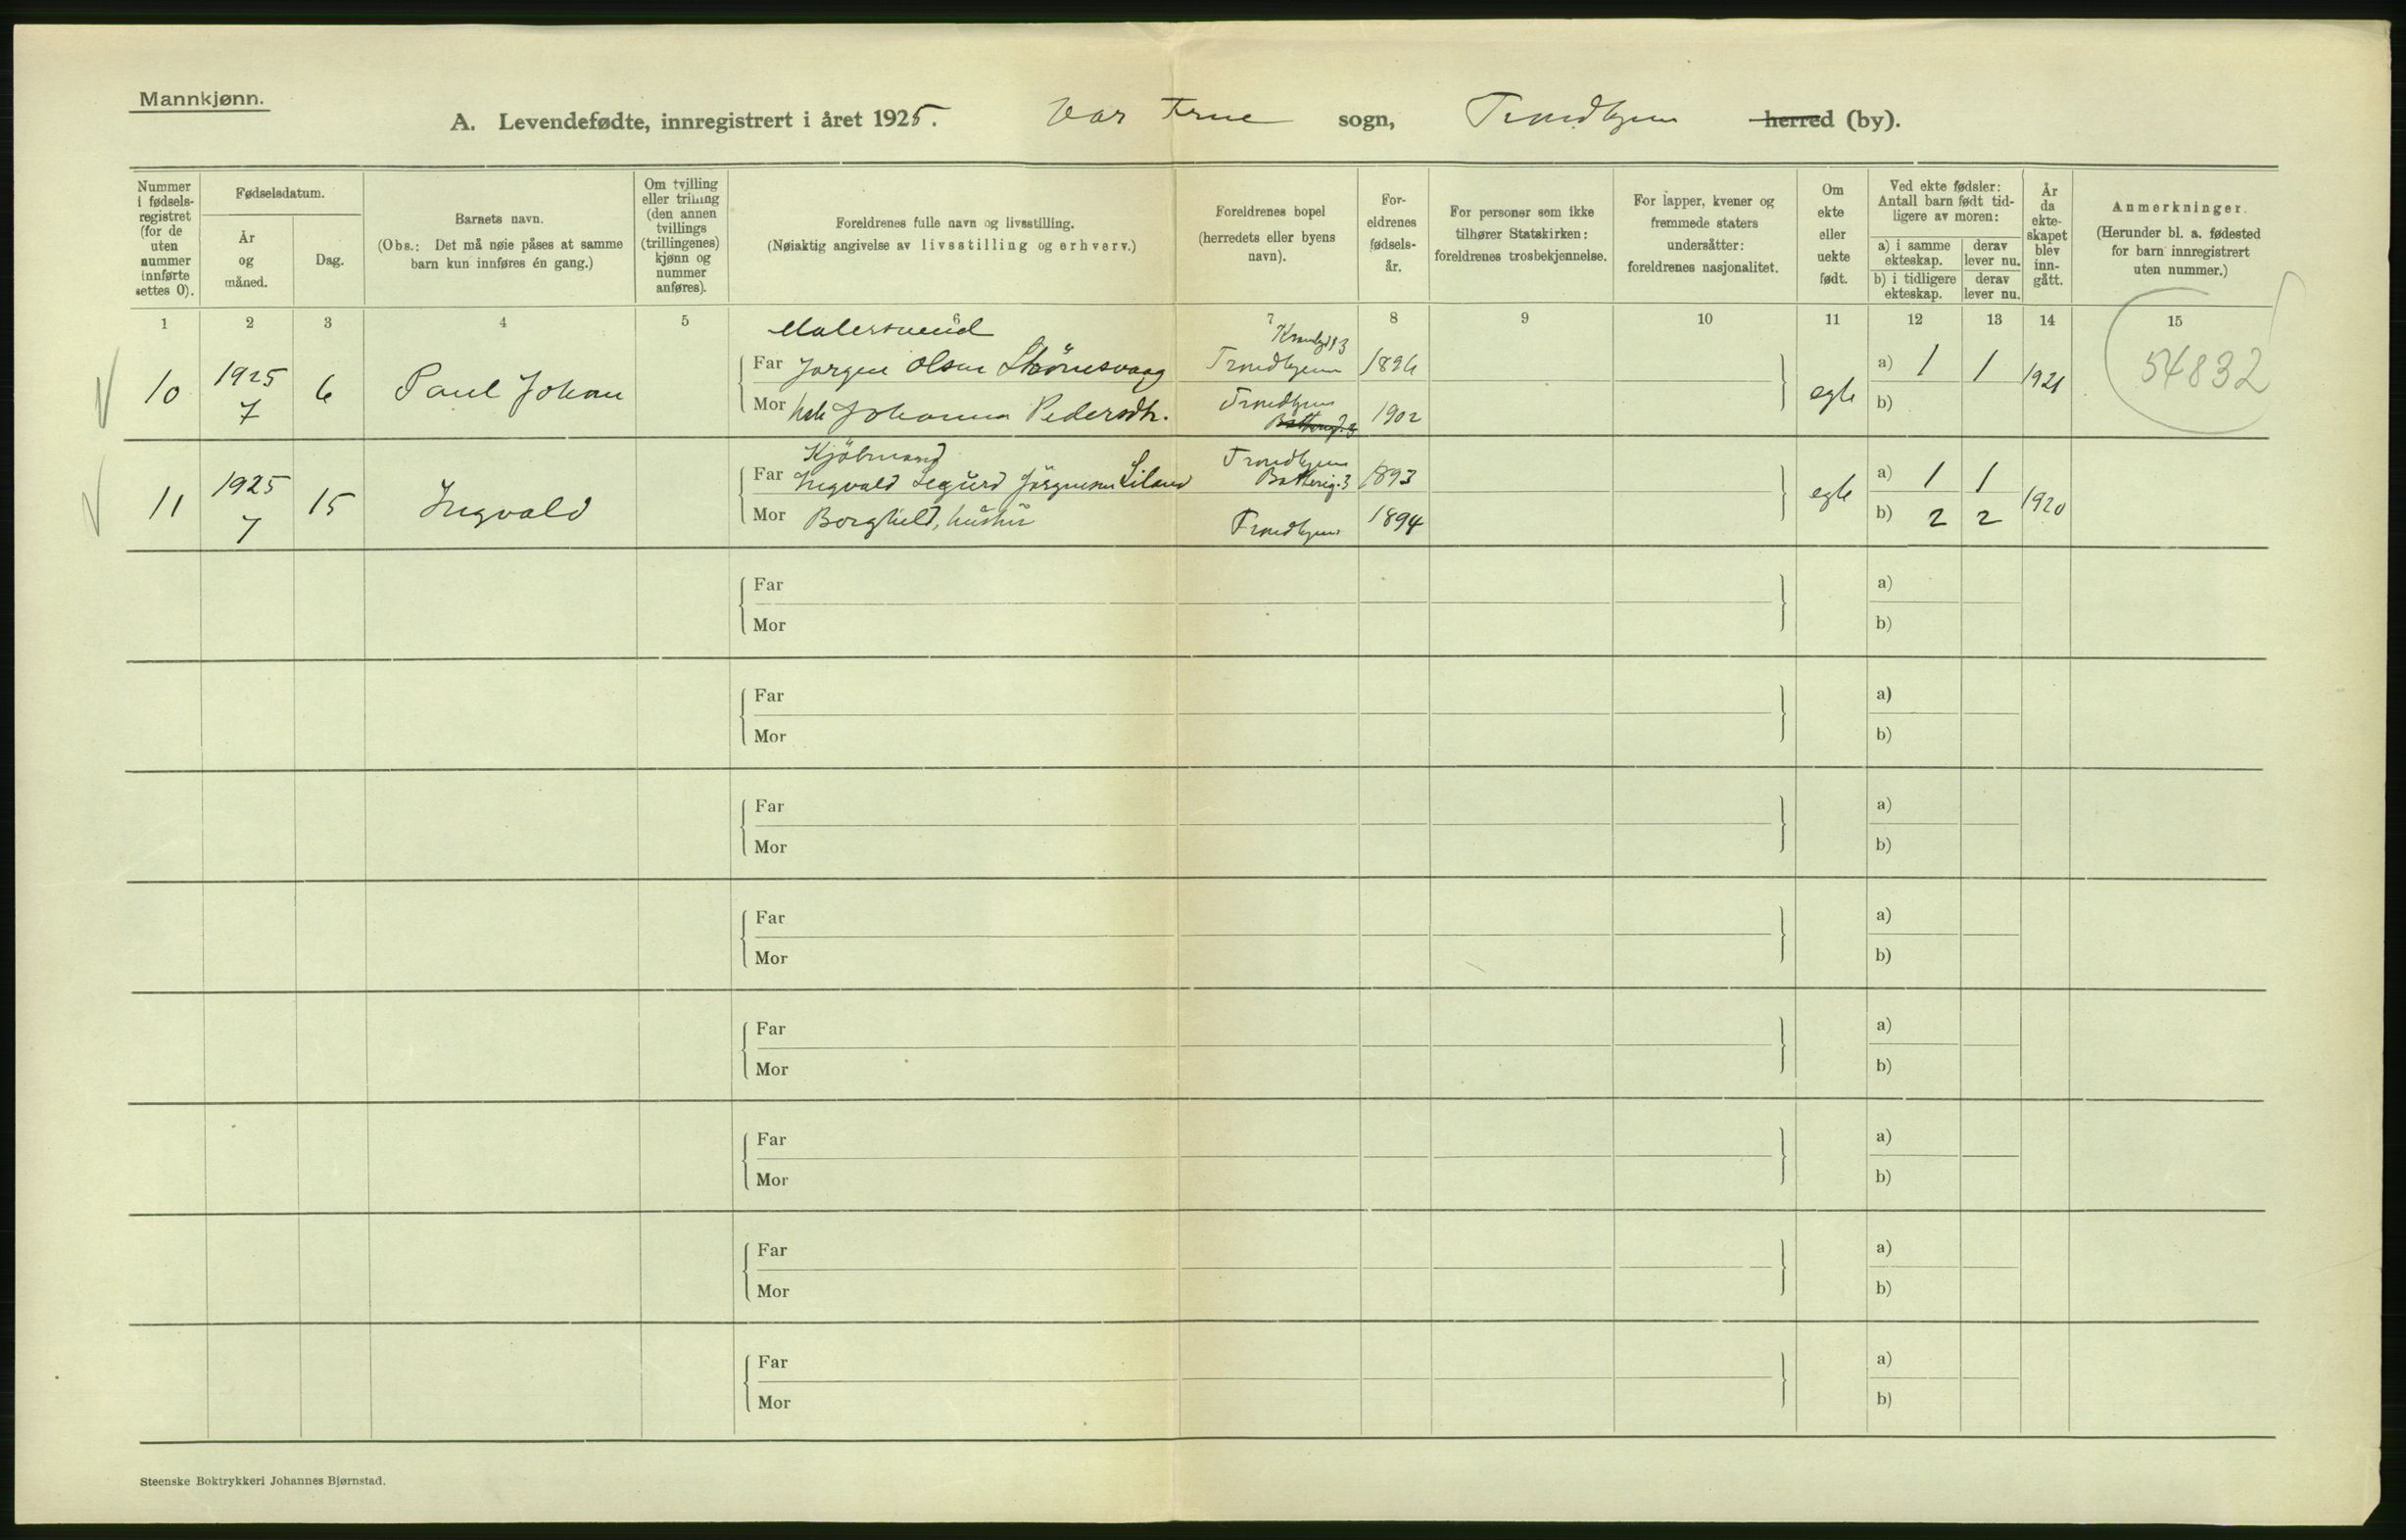 Mannkjønn.
A. Levendefødte, innregistrert i året 1925. Vor Frue sogn, Trondhjem herred (by).
Nummer i fødsels-registret (for de uten nummer innførte settes 0).
Fødselsdatum.
År og måned.
Dag.
Barnets navn.
(Obs.: Det må nøie påses at samme barn kun innføres én gang.)
Om tvilling eller trilling (den annen tvillings (trillingenes) kjønn og nummer anføres).
Foreldrenes fulle navn og livsstilling.
(Nøiaktig angivelse av livsstilling og erhverv.)
Foreldrenes bopel (herredets eller byens navn).
For-eldrenes fødsels-år.
For personer som ikke tilhører Statskirken: foreldrenes trosbekjennelse.
For lapper, kvener og fremmede staters undersåtter: foreldrenes nasjonalitet.
Om ekte eller uekte født.
Ved ekte fødsler: Antall barn født tid-ligere av moren:
a) i samme ekteskap.
derav lever nu.
b) i tidligere ekteskap.
derav lever nu.
År da ekte-skapet blev inn-gått.
Anmerkninger.
(Herunder bl. a. fødested for barn innregistrert uten nummer.)
1 2 3 4 5 6 7 8 9 10 11 12 13 14 15
Malersvend
10 1925 7 6 Paul Johan
Far Jørgen Olsen Trondhjem 1896
Mor Johanna Pedersdtr. Trondhjem 1902
egte a) 1 1 b) 1921
54832
Kjöbmand
11 1925 7 15 Ingvald
Far Ingvald Sigurd Jörgensen Liland Trondhjem Batterig. 3 1893
Mor Borghild, hustru Trondhjem 1894
egte a) 1 1 b) 2 2 1920
Far a)
Mor b)
Far a)
Mor b)
Far a)
Mor b)
Far a)
Mor b)
Far a)
Mor b)
Far a)
Mor b)
Far a)
Mor b)
Far a)
Mor b)
Steenske Boktrykkeri Johannes Bjørnstad.